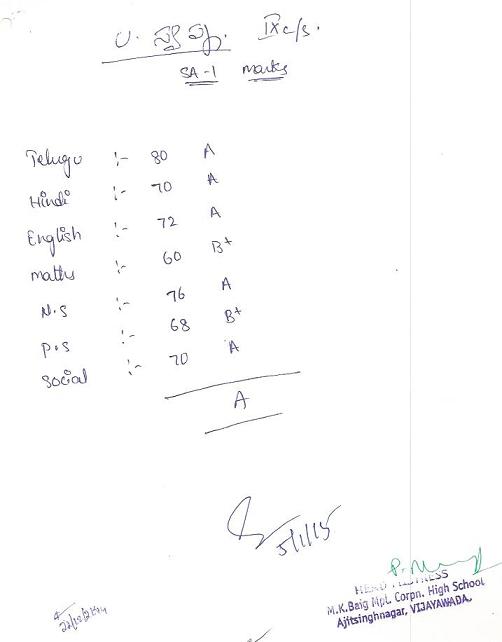 IX c/s.
SA-1 marks
Telugu :- 80 A
Hindi :- 70 A
English :- 72 A
maths :- 60 B+
N.S :- 76 A
P.S :- 68 B+
Social :- 70 A
A
5/1/15
HEAD MISTRESS
M.K.Baig Mpl. Corpn. High School
Ajitsinghnagar, VIJAYAWADA.